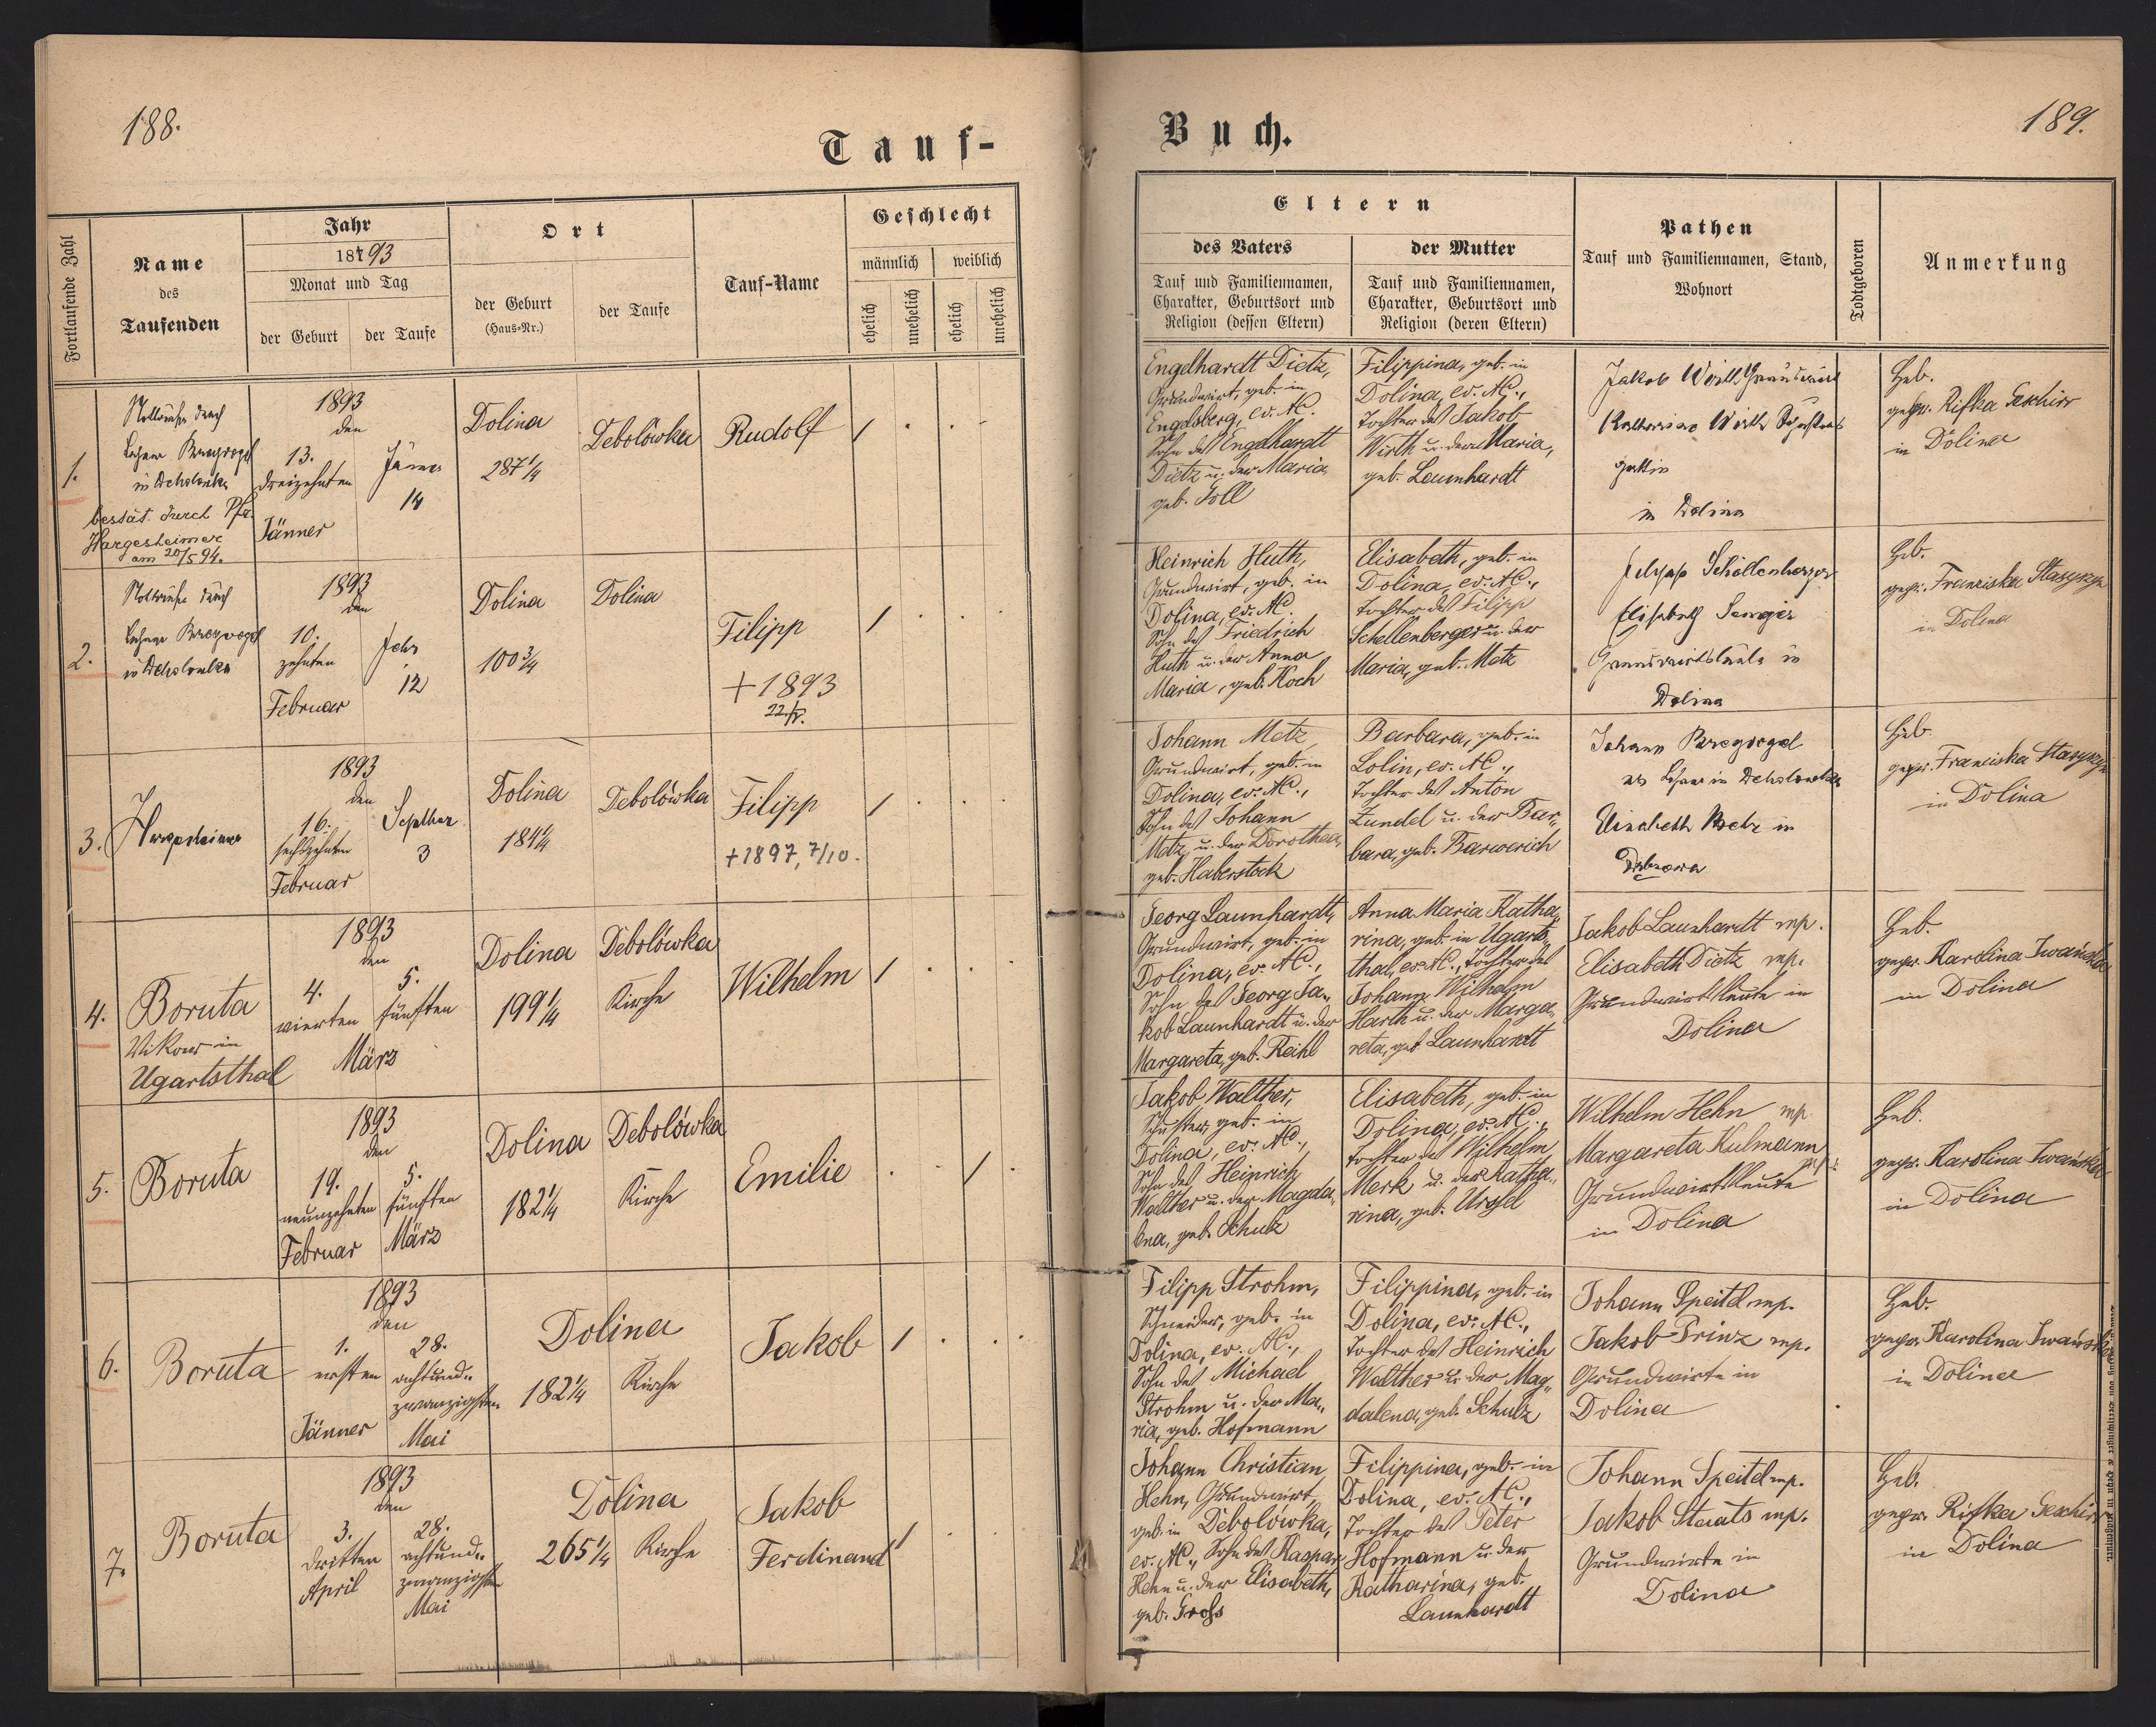 188.
Tauf-
Fortlaufende Zahl
Name
des
Taufenden
Jahr
18793
Monat und Tag
der Geburt
der Taufe
Ort
der Geburt
(Haus-Nr.)
der Taufe
Tauf-Name
Geschlecht
männlich
weiblich
ehelich
unehelich
ehelich
unehelich
1.
Nottaufe durch
Lehrer
in Debolowka
bestät. durch Pfr.
Hargesheimer
am 20/5 94.
1893
den
13.
dreizehnten
Jänner
Jänner
14
Dolina
287 1/4
Debolówka
Rudolf
2.
Nottaufe durch
Lehrer
in Debolowka
1893
den
10.
zehnten
Februar
Febr
12
Dolina
100 3/4
Dolina
Filipp
+ 1893
3.
Hargesheimer
1893
den
16.
sechszehnten
Februar
Septber
3
Dolina
184 1/4
Debolówka
Filipp
+ 1897, 7/10.
4.
Boruta
Vikar in
Ugartsthal
1893
den
4.
vierten
5.
fünften
März
Dolina
199 1/4
Debolówka
Kirche
Wilhelm
5.
Boruta
1893
den
19.
neunzehnten
Februar
5.
fünften
März
Dolina
182 1/4
Debolówka
Kirche
Emilie
6.
Boruta
1893
den
1.
ersten
Jänner
28.
achtund-
zwanzigsten
Mai
Dolina
182 1/4
Kirche
Jakob
7.
Boruta
1893
den
3.
dritten
April
28.
achtund-
zwanzigsten
Mai
Dolina
265 1/4
Kirche
Jakob
Ferdinand
Buch.
189.
Eltern
des Vaters
Tauf und Familiennamen,
Charakter, Geburtsort und
Religion (dessen Eltern)
der Mutter
Tauf und Familiennamen,
Charakter, Geburtsort und
Religion (deren Eltern)
Pathen
Tauf und Familiennamen, Stand,
Wohnort
Todtgeboren
Anmerkung
Engelhardt Dietz,
Grundwirt, geb. in
Engelsberg, ev. AC.
Sohn des Engelhardt
Dietz u. der Maria,
geb. Joll
Filippina, geb. in
Dolina, ev. AC.,
Tochter des Jakob
Wirth u. der Maria,
geb. Launhardt
Jakob Wirth Grundwirt
Katharina Wirth
gattin
in Dolina
Heb.
gepr. Rifka Geschirr
in Dolina
Heinrich Huth,
Grundwirt, geb. in
Dolina, ev. AC.
Sohn des Friedrich
Huth u. der Anna
Maria, geb. Koch
Elisabeth, geb. in
Dolina, ev. AC.,
Tochter des Filipp
Schellenberger u. der
Maria, geb. Metz
Schellenberger
Elisabeth
Grundwirtsleute in
Dolina
Heb.
gepr. Franciska
in Dolina
Johann Metz
Grundwirt, geb. in
Dolina, ev. AC.,
Sohn des Johann
Metz u. der Dorothea,
geb. Haberstock
Barbara, geb. in
Lolin, ev. AC.,
Tochter des Anton
Zundel u. der Bar-
bara, geb. Barwerich
Johann
als Lehrer in Debolowka
Elisabeth Metz in
Heb.
gepr. Franciska
in Dolina
Georg Launhardt,
Grundwirt, geb. in
Dolina, ev. AC.,
Sohn des Georg Ja-
kob Launhardt u. der
Margareta, geb. Reihl
Anna Maria Katha-
rina, geb. in Ugarts-
thal, ev. AC., Tochter des
Johann Wilhelm
Harth u. der Marga-
reta, geb. Launhardt
Jakob Launhardt mp.
Elisabeth Dietz mp.
Grundwirtsleute in
Dolina
Heb.
gepr. Karolina Iwańska
in Dolina
Jakob Walther,
Schuster, geb. in
Dolina, ev. AC.,
Sohn des Heinrich
Walther u. der Magda-
lena, geb. Schulz
Elisabeth, geb. in
Dolina, ev. AC.,
Tochter des Wilhelm
Merk u. der Katha-
rina, geb. Ursel
Wilhelm Hehn mp.
Margareta Kulmann
mp.
Grundwirtsleute
in Dolina
Heb.
gepr. Karolina Iwańska
in Dolina
Filipp Strohm,
Schneider, geb. in
Dolina, ev. AC.,
Sohn des Michael
Strohm u. der Ma-
ria, geb. Hofmann
Filippina, geb. in
Dolina, ev. AC.,
Tochter des Heinrich
Walther u. der Mag-
dalena, geb. Schulz
Johann Speitel mp.
Jakob Prinz mp.
Grundwirte in
Dolina
Heb.
gepr. Karolina Iwańska
in Dolina
Johann Christian
Hehn, Grundwirt,
geb. in Debolowka,
ev. AC., Sohn des Kaspar
Hehn u. der Elisabeth,
geb. Groß
Filippina, geb. in
Dolina, ev. AC.,
Tochter des Peter
Hofmann u. der
Katharina, geb.
Launhardt
Johann Speitel mp.
Jakob Staats mp.
Grundwirte in
Dolina
Heb.
gepr. Rifka Geschirr
in Dolina